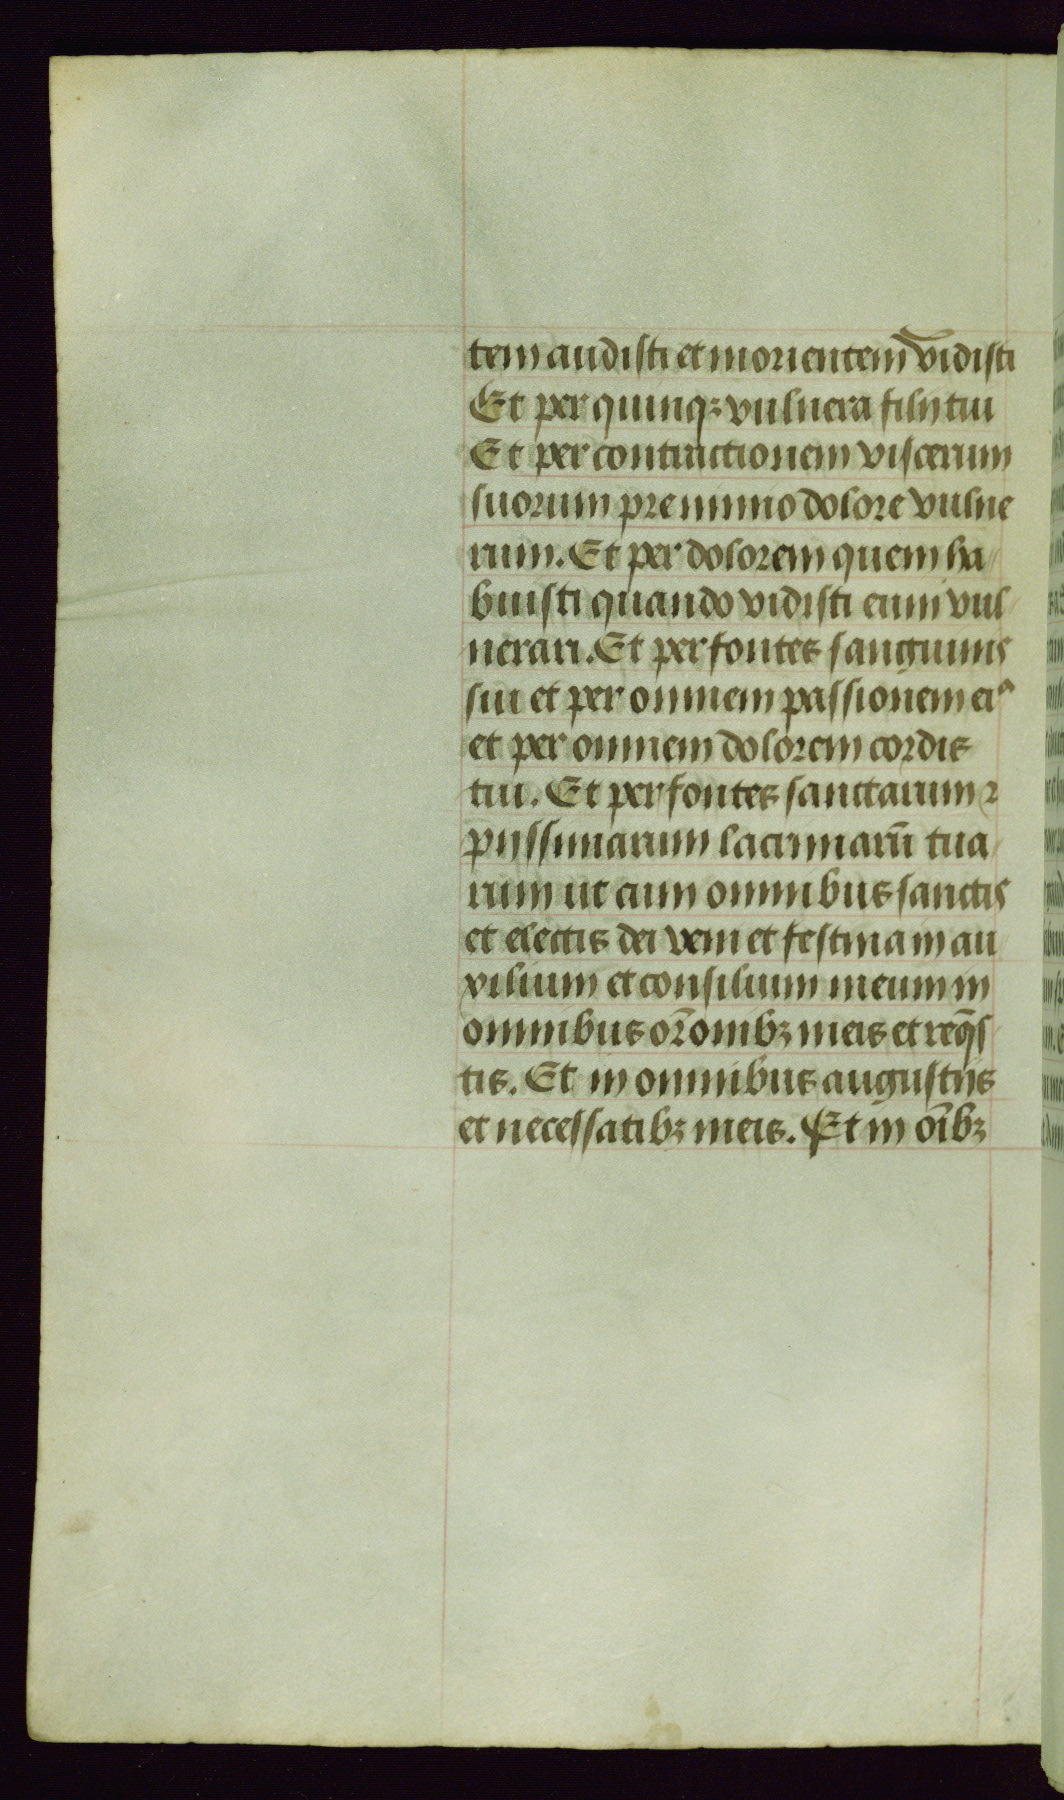 tem audisti et morientem vidisti
Et per quinqꝫ vulnera filij tui
Et per contractionem viscerum
suorum pre nimio dolore vulne
rum. Et per dolorem quem ha
buisti quando vidisti eum vul
nerari. Et per fontes sanguinis
sui et per omnem passionem eiꝰ
et per omnem dolorem cordis
tui. Et per fontes sanctarum ⁊
pijssimarum lacrimarū tua
rum ut cum omnibus sanctis
et electis dei veni et festina in au
xilium et consilium meum in
omnibus or̄onibꝫ meis et req̄s
tis. Et in omnibus angustijs
et necessatibꝫ meis. Et in oībꝫ